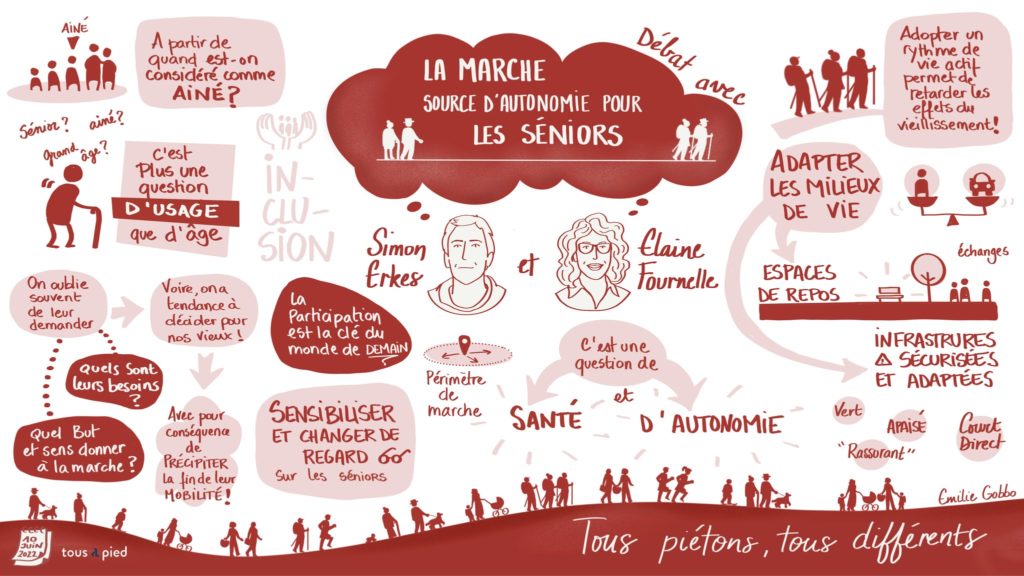 AINÉ
A partir de
quand est-on
considéré comme
AINÉ?
Sénior? ainé?
Grand
âge?
C'est
Plus une
question
D'USAGE
que d'âge
IN-
CLU-
SION
LA MARCHE
SOURCE D'AUTONOMIE POUR
LES SÉNIORS
Débat avec
Simon
Erkes
et
Elaine
Fournelle
Adopter un
rythme de
vie actif
permet de
retarder les
effets du
vieillissement!
ADAPTER
LES MILIEUX
DE VIE
échanges
ESPACES
DE REPOS
INFRASTRURES
SÉCURISÉES
ET ADAPTÉES
Vert
APAISÉ
Court
Direct
"Rassurant"
On oublie
souvent
de leur
demander
Voire, on a
tendance à
décider pour
nos vieux!
Quels sont
leurs besoins
?
Quel But
et sens donner
à la marche?
Avec pour
conséquence
de
PRÉCIPITER
la fin de leur
MOBILITÉ!
La
Participation
est la clé du
monde de DEMAIN
SENSIBILISER
ET CHANGER DE
REGARD
Sur les séniors
Périmètre
de
marche
C'est une
question de
SANTÉ
et
D'AUTONOMIE
Emilie Gobbo
10
JUIN
2022
tous à pied
Tous piétons, tous différents